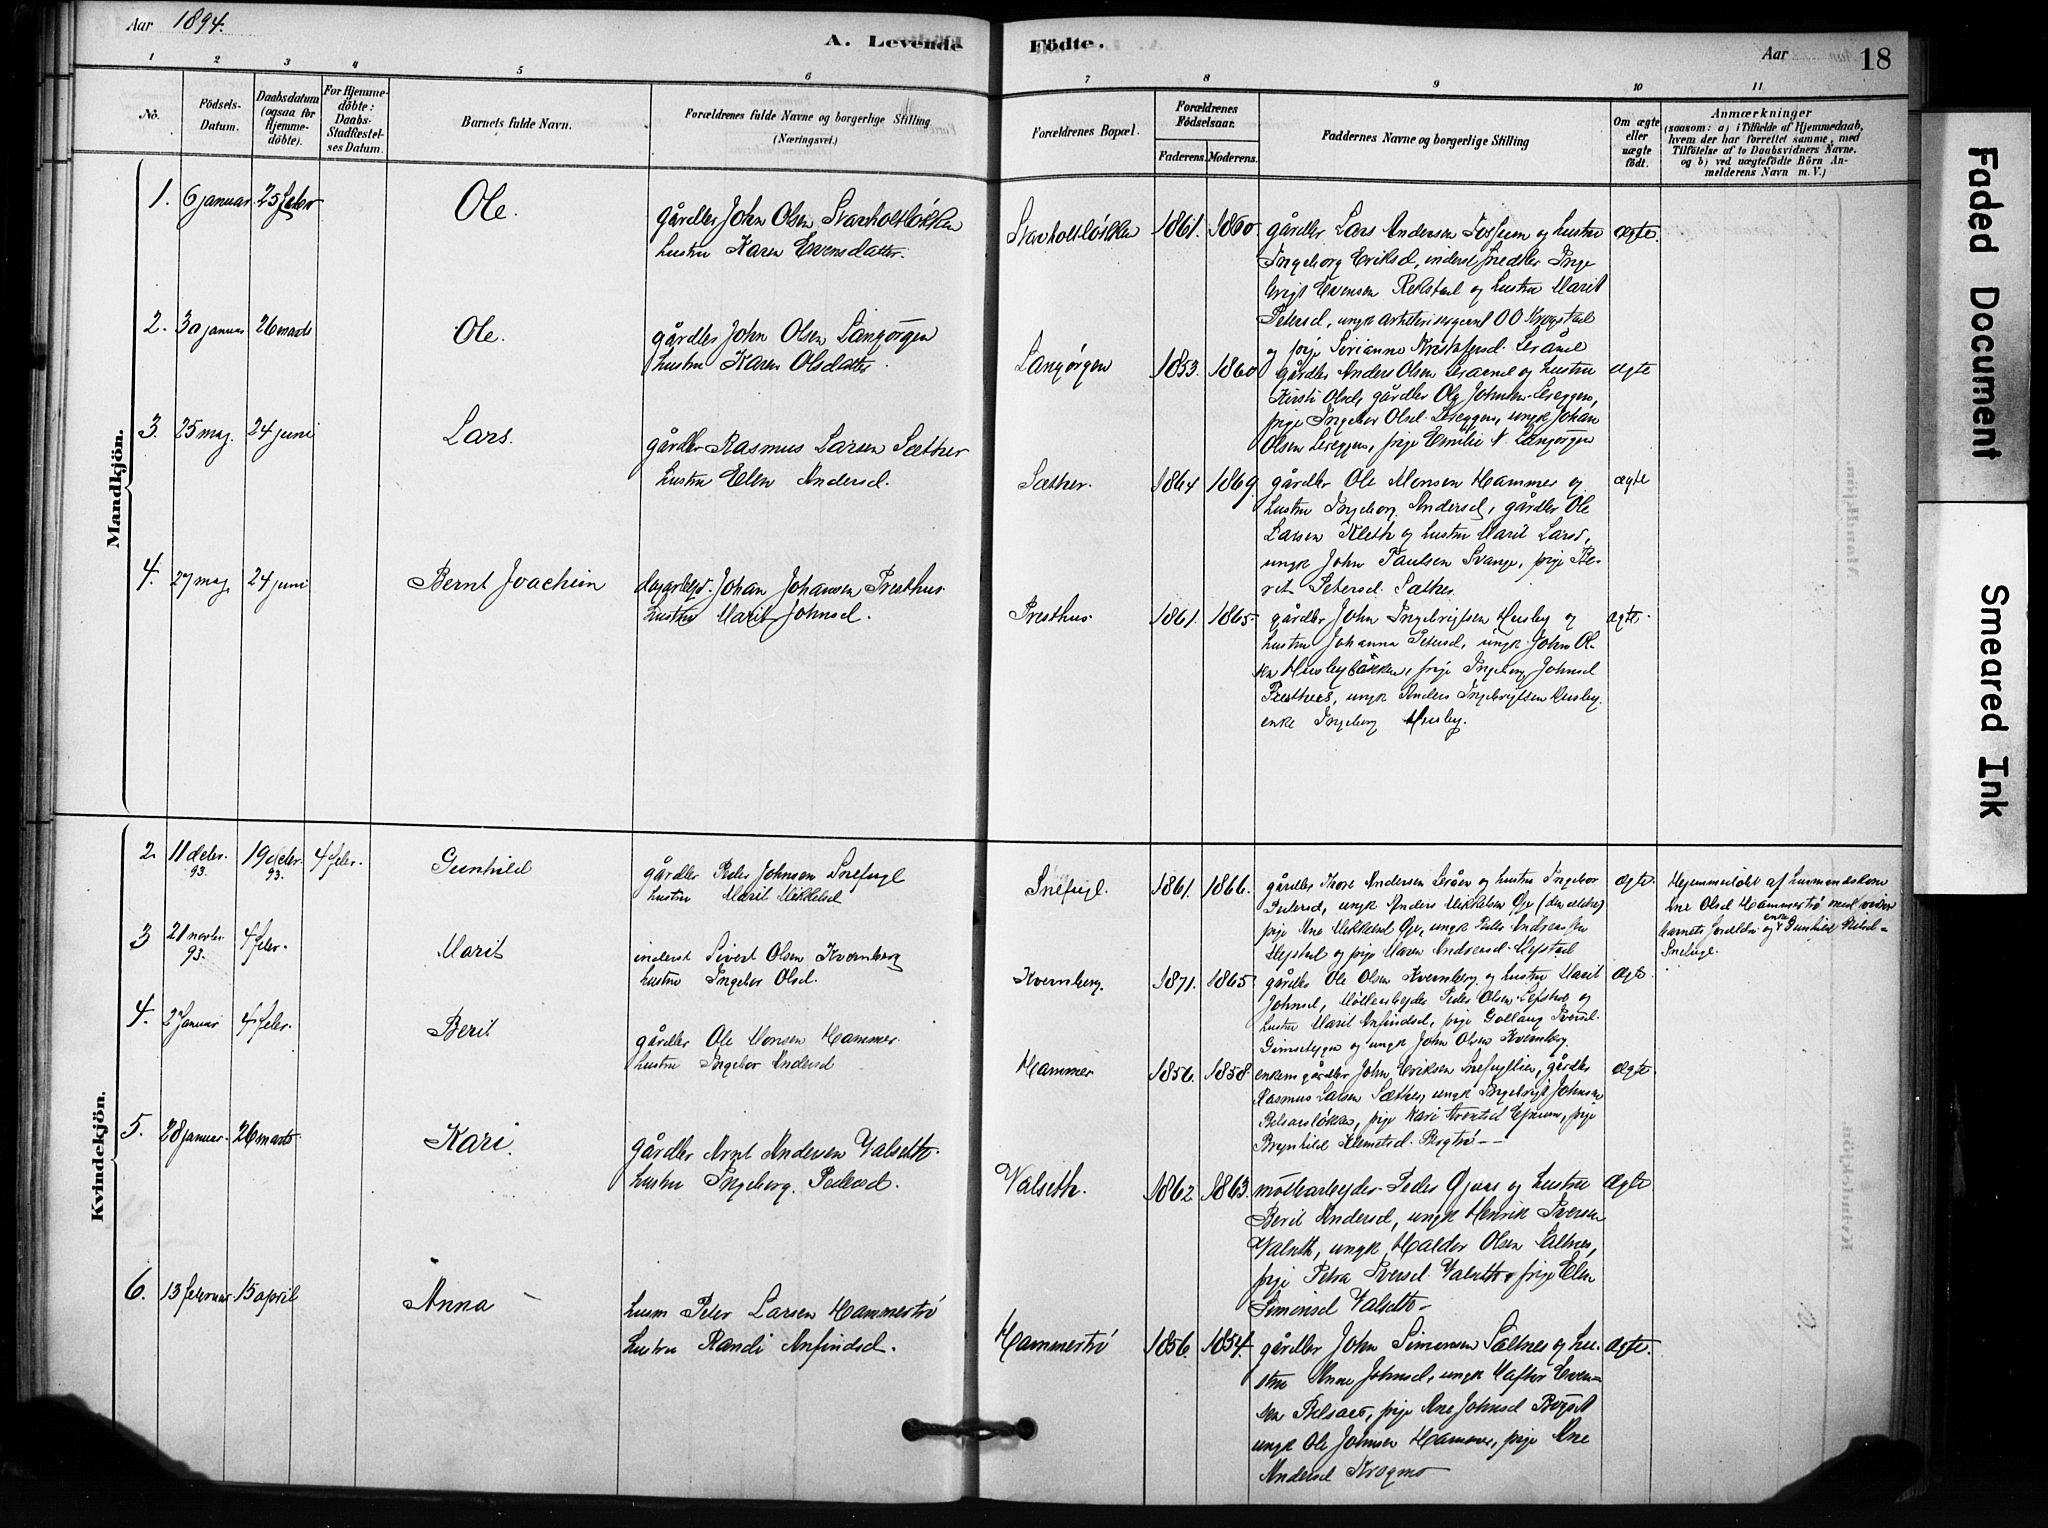 Aar 1894.
A. Levende Födte.
Aar
18
1 2 3 4 5 6 7 8 9 10 11
No.
Födsels-Datum.
Daabsdatum (ogsaa for Hjemmedöbte).
For Hjemmedöbte: Daabs-Stadfæstelses Datum.
Barnets fulde Navn.
Forældrenes fulde Navne og borgerlige Stilling (Næringsvei.)
Forældrenes Bopæl.
Forældrenes Födselsaar.
Faderens. Moderens.
Faddernes Navne og borgerlige Stilling
Om ægte eller uægte födt.
Anmærkninger
(saasom: a) i Tilfælde af Hjemmedaab,
hvem der har forrettet samme, med
Tilföielse af to Daabsvidners Navne.
og b) ved uægtefödte Börn Anmelderens Navn m. V.)
Mandkjön.
1. 6 januar 25 febr Ole.
gårdbr John Olsen Skarholtløkken
hustru Karen Evensdatter.
Skarholtløkken 1861. 1860.
gårdbr Lars Andersen Fosseum og hustru
Ingeborg Eriksd, inderst Snedker Inge
brigt Evensen Rekstad og hustru Marit
Petersd, ungk artillerisergeant O O Krogstad
og pige Serianna Kristofersd. Leråne
ægte.
2. 30 januar 26 marts Ole.
gårdbr John Olsen Langørgen
hustru Karen Olsdatter.
Langørgen 1853. 1860
gårdbr Anders Olsen Leraane og hustru
Kirsti Olsd, gårdbr Ole Johnsen Løreggen,
pige Ingebor Olsd. Løreggen, ungk Johan
Olsen Løreggen, pige Emilie N Langørgen
ægte
3. 25 maj. 24 juni Lars.
gårdbr Rasmus Larsen Sæther
hustru Elen Andersd.
Sæther. 1864 1869
gårdbr Ole Monsen Hammer og
hustru Ingeborg Andersd, gårdbr Ole
Larsen Kleth og hustru Marit Larsd,
ungk John Paulsen Svange, pige Be-
rit Petersd. Sæther.
ægte
4. 27 maj 24 juni Bernt Joachim
dagarbejd. Johan Johansen Presthus
hustru Marit Johnsd.
Presthus. 1861. 1865.
gårdbr John Ingebrigtsen Husby og
hustru Johanna Petersd, ungk John Ol-
sen Husbyløkken, pige Ingeborg Johnsd
Presthus, ungk Anders Ingebrigtsen Husby.
enke Ingeborg Husby.
ægte.
Kvindekjön.
2. 11 debr. 93. 19 debr. 93. 4 febr. Gunhild
gårdbr Peder Johnsen Snefugl
hustru Marit Mikkelsd
Snefugl. 1861. 1866.
gårdbr Tore Andersen Leråen og hustru Ingebor
Petersd, ungk Anders Mikkelsen Øje (den eldre)
pige Ane Mikkelsd Øje, ungk Peder Andreassen
Hystad og pige Maren Andreasd. Hystad
ægte.
Hjemmedøbt af husmandskone
Ane Olsd Hammertrø med vidner
barnets foreldre og enke Gunhild Nilsd.
Snefugl.
3 21 novbr. 93. 4 febr. Marit
inderst Sivert Olsen Kvernberg
hustru Ingebor Olsd.
Kvernberg. 1871. 1865.
gårdbr Ole Olsen Kvernberg og hustru Marit
Johnsd, Møllearbejder Peder Olsen Løfshus og
hustru Marit Anfindsd, pige Gollaug Iversd.
Gimsebygen og ungk John Olsen Kvernberg.
ægte
4. 2 januar 4 febr. Berit
gårdbr Ole Monsen Hammer.
hustru Ingebor Andersd
Hammer 1856. 1858.
enkem gårdbr John Eriksen Snefugllien, gårdbr
Rasmus Larsen Sæther, ungk Ingebrigt Johnsen
Belsaasløkken, pige Kari Arntsd Ejmum, pige
Brynhild Klemetsd. Bergtrø –
ægte
5. 28 januar. 26 marts. Kari.
gårdbr Arnt Andersen Valseth.
hustru Ingeborg. Pedersd.
Valseth. 1862 1863.
møllearbejder Peder Gjaas og hustru
Berit Andersd, ungk Henrik Iversen
Valseth, ungk Haldor Olsen Saltnes,
pige Petra Iversd. Valseth, pige Elen
Simonsd Valseth –
ægte
6. 13 februar 15 april Anna –
husm Peter Larsen Hammertrø
hustru Randi Anfindsd.
Hammertrø 1856. 1854.
gårdbr John Simonsen Sæltnes og hu-
stru Anne Johnsd, ungk Hafter Even-
sen Belsaas, pige Ane Johnsd Bogsæt
ungk Ole Johnsen Hammer, pige Ane
Andersd Krogmo
ægte.
Faded Document
Smeared Ink